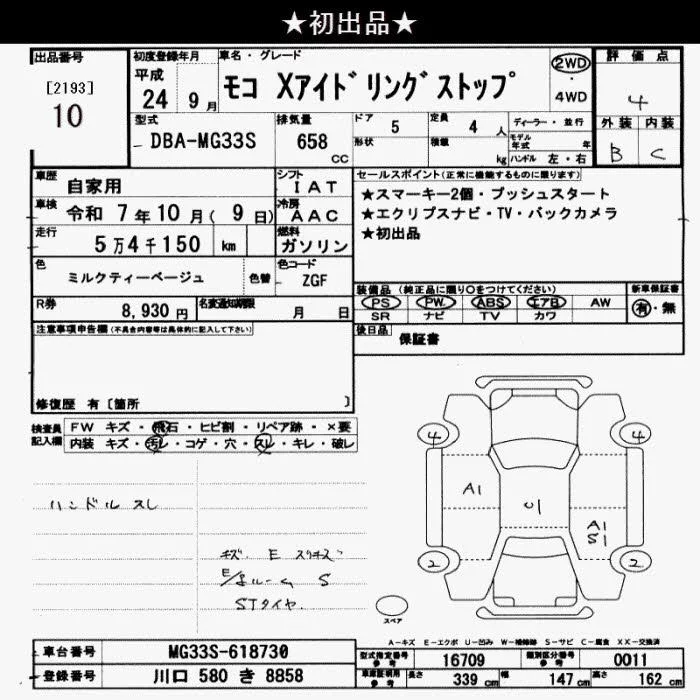 ★初出品★
出品番号
[2193]
10
初度登録年月
平成
24 9月
車名・グレード
モコ Xアイドリングストップ
2WD
・
4WD
評価点
4
外装 内装
B C
型式
DBA-MG33S
排気量
658
cc
ドア 5
形状
定員 4 人
積載 kg
ディーラー・並行
モデル年式 年
ハンドル 左・右
車歴 自家用
シフト IAT
車検 令和 7年10月( 9日)
冷房 AAC
走行 5万4千150 km
燃料 ガソリン
色 ミルクティーベージュ
色替
色コード ZGF
R券 8,930円
名変通知期限 月 日
セールスポイント(正常に機能するものに限ります)
★スマーキー2個・プッシュスタート
★エクリプスナビ・TV・バックカメラ
★初出品
装備品 (純正品に限り○をつけてください)
新車保証書
PS PW ABS エアB AW
SR ナビ TV カワ
有・無
後日品
保証書
注意事項申告欄(不具合内容等は具体的に記入して下さい)
修復歴 有〔箇所 〕
検査員記入欄
FW キズ・飛石・ヒビ割・リペア跡・×要
内装 キズ・汚レ・コゲ・穴・スレ・キレ・破レ
ハンドル スレ
キズ E スリキズ
ST タイヤ
4 4
A1 U1 A1
S1
2 2
スペア
A-キズ E-エクボ U-凹み W-補修跡 S-サビ C-腐食 XX-交換済
車台番号 MG33S-618730
登録番号 川口 580 き 8858
型式指定番号 参考 16709
類別区分番号 参考 0011
車庫証明用 参考 長さ 339 cm 幅 147 cm 高さ 162 cm